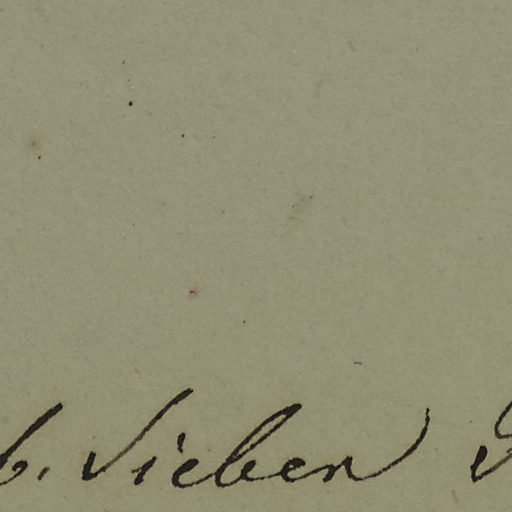 b. Sieben